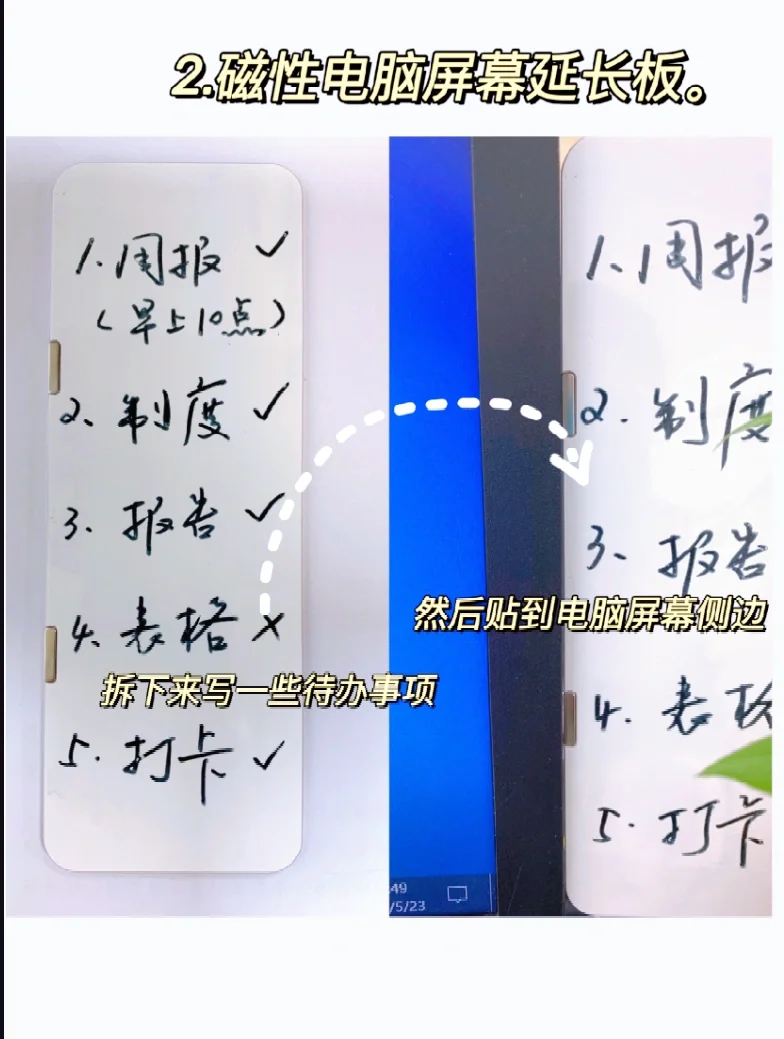 2.磁性电脑屏幕延长板。
1.周报 ✓
(早上10点)
2、制度 ✓
3、报告 ✓
4.表格 ✗
拆下来写一些待办事项
5.打卡 ✓
1、周报
2.制度
3、报告
然后贴到电脑屏幕侧边
4.表格
5.打卡
:49
/5/23